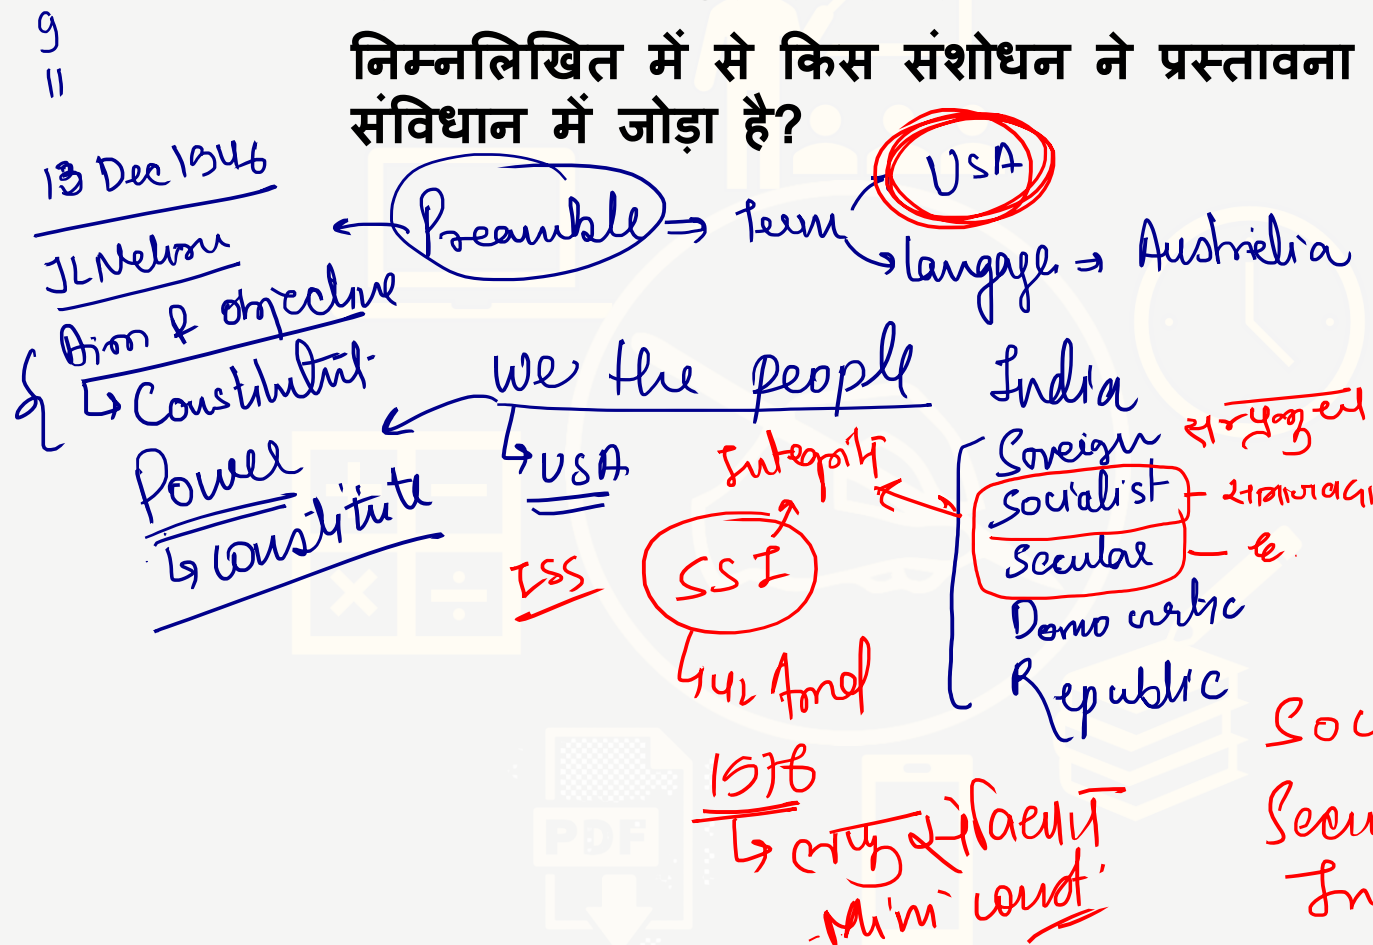 9
11
निम्नलिखित में से किस संशोधन ने प्रस्तावना
संविधान में जोड़ा है?
13 Dec 1946
JL Nehru
Aim & objective
Constitutnt
Power
constitute
Preamble ⇒ Term
USA
Langage ⇒ Austrielia
We the people India
USA
Sovereign
Socialist
Secular
Democratic
Republic
Integrity
ISS
SSI
42 Amd
1976
लघु संविधान
Mini const
PDF
Soc
Secu
In